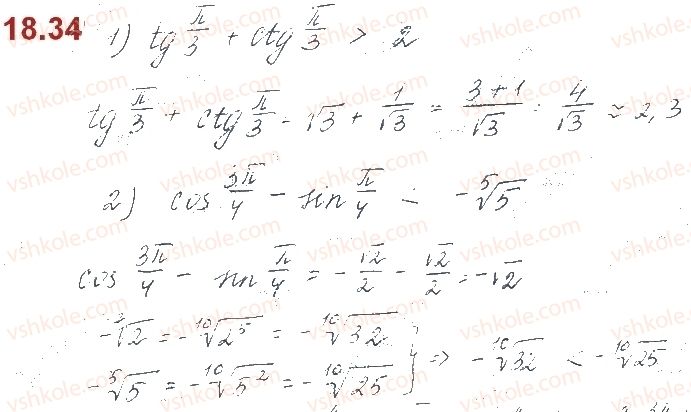 18.34
1) tg π/3 + ctg π/3 > 2
tg π/3 + ctg π/3 = √3 + 1/√3 = (3+1)/√3 = 4/√3 ≈ 2,3
2) cos 3π/4 − sin π/4 < −⁵√5
cos 3π/4 − sin π/4 = −√2/2 − √2/2 = −√2
−√2 = −¹⁰√2⁵ = −¹⁰√32
−⁵√5 = −¹⁰√5² = −¹⁰√25 } => −¹⁰√32 < −¹⁰√25
vshkole.com